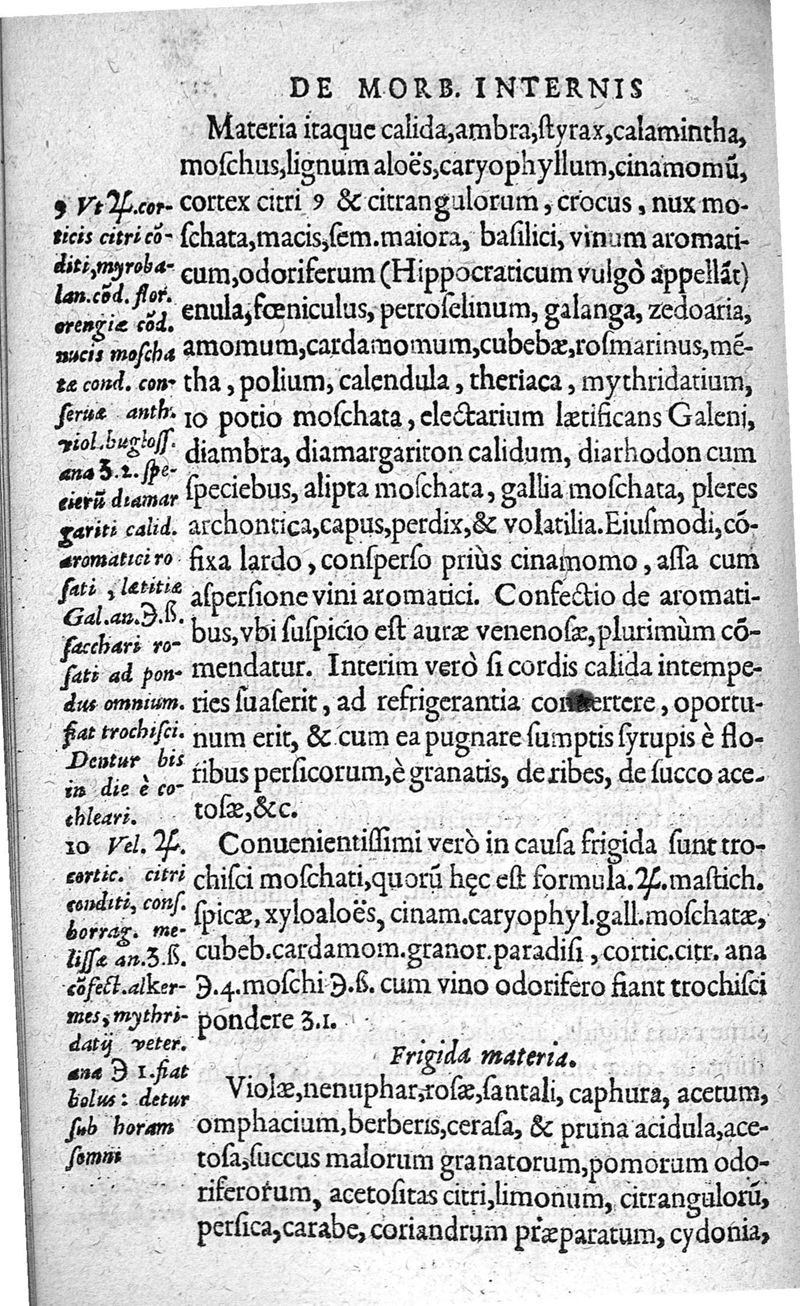 DE MORB. INTERNIS
Materia itaque calida,ambra,ſtyrax,calamintha,
moſchus,lignum aloës,caryophyllum,cinamomũ,
cortex citri 9 & citrangulorum, crocus, nux mo-
ſchata,macis,ſem.maiora, baſilici, vinum aromati-
cum,odoriferum (Hippocraticum vulgò appellãt)
enula,fœniculus, petroſelinum, galanga, zedoaria,
amomum,cardamomum,cubebæ,roſmarinus,mẽ-
tha, polium, calendula, theriaca, mythridatium,
10 potio moſchata, electarium lætificans Galeni,
diambra, diamargariton calidum, diarhodon cum
ſpeciebus, alipta moſchata, gallia moſchata, pleres
archontica,capus,perdix,& volatilia.Eiuſmodi,cõ-
fixa lardo, conſperſo priùs cinamomo, aſſa cum
aſperſione vini aromatici. Confectio de aromati-
bus,vbi ſuſpicio eſt auræ venenoſæ,plurimùm cõ-
mendatur. Interim verò ſi cordis calida intempe-
ries ſuaſerit, ad refrigerantia conuertere, oportu-
num erit, & cum ea pugnare ſumptis ſyrupis è flo-
ribus perſicorum,è granatis, de ribes, de ſucco ace-
toſæ,&c.
Conuenientiſſimi verò in cauſa frigida ſunt tro-
chiſci moſchati,quorũ hęc eſt formula.♃.maſtich.
ſpicæ, xyloaloës, cinam.caryophyl.gall.moſchatæ,
cubeb.cardamom.granor.paradiſi, cortic.citr. ana
℈.4.moſchi ℈.ß. cum vino odorifero fiant trochiſci
pondere ʒ.1.
Frigida materia.
Violæ,nenuphar,roſæ,ſantali, caphura, acetum,
omphacium,berberis,ceraſa, & pruna acidula,ace-
toſa,ſuccus malorum granatorum,pomorum odo-
riferorum, acetoſitas citri,limonum, citrangulorũ,
perſica,carabe, coriandrum præparatum, cydonia,
9 Vt ♃.cor-
ticis citri cõ-
diti,myroba-
lan.cõd. flor.
orengiæ cõd.
nucis moſcha
tæ cond. con-
ſeruæ anth.
viol.bugloſſ.
ana ʒ.1.ſpe-
cierũ diamar
gariti calid.
aromatici ro
ſati, lætitiæ
Gal.an.℈.ß.
ſacchari ro-
ſati ad pon-
dus omnium.
fiat trochiſci.
Dentur bis
in die è co-
chleari.
10 Vel. ♃.
cortic. citri
conditi, conſ.
borrag. me-
liſſæ an.ʒ.ß.
cõfect.alker-
mes, mythri-
datij veter.
ana ℈ 1.fiat
bolus: detur
ſub horam
ſomni